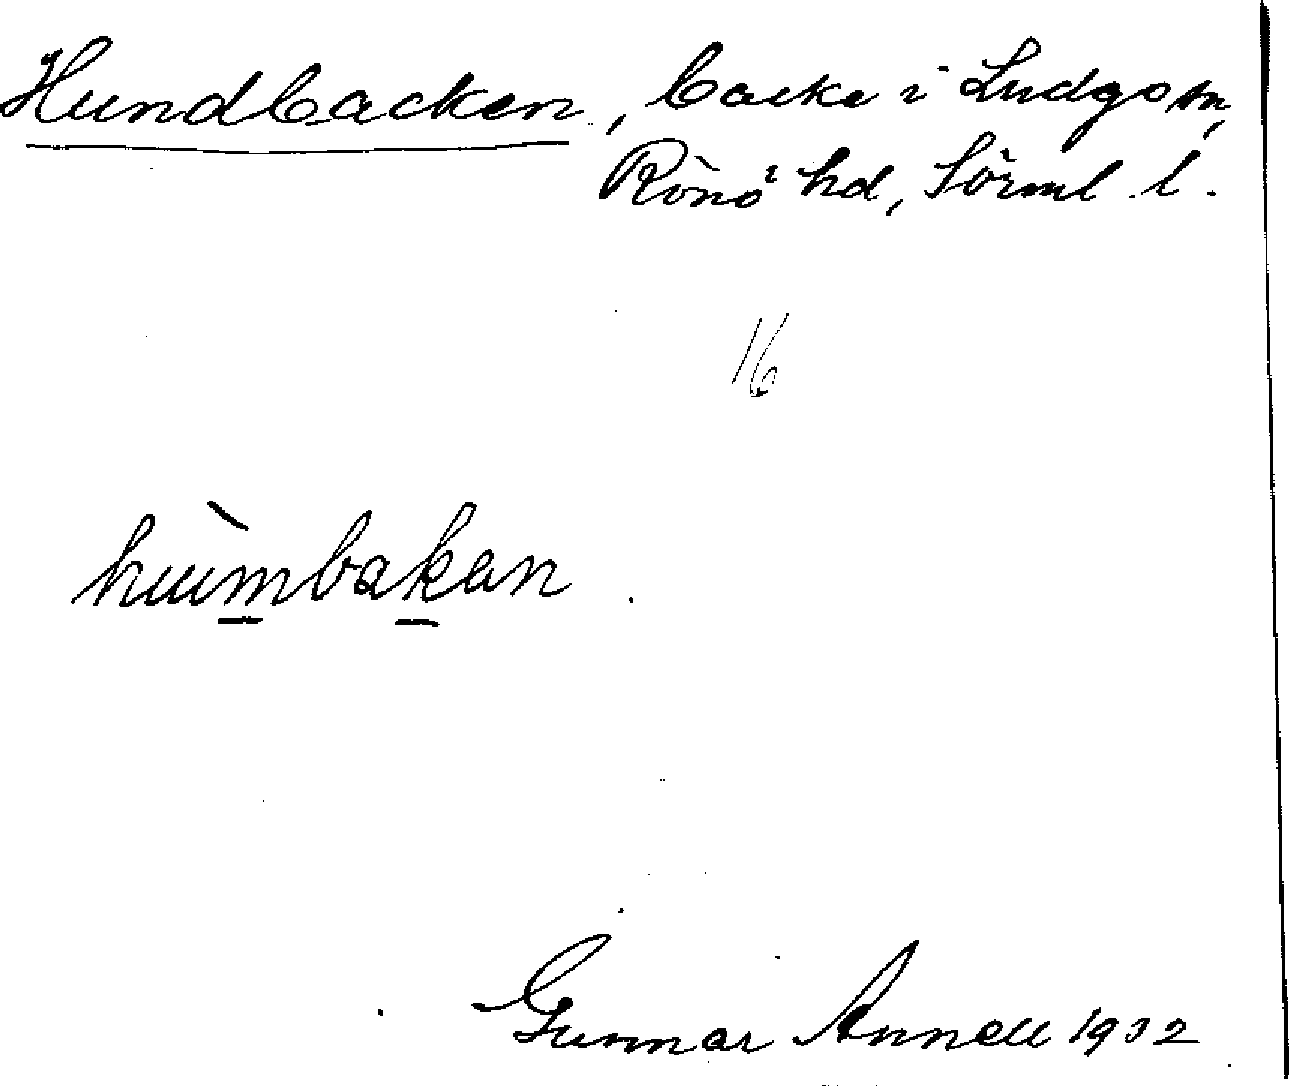 Hundbacken, backe i Ludgo sn,
Rönö hd, Sörml. l.
16
hùmbakan
Gunnar Annell 1932